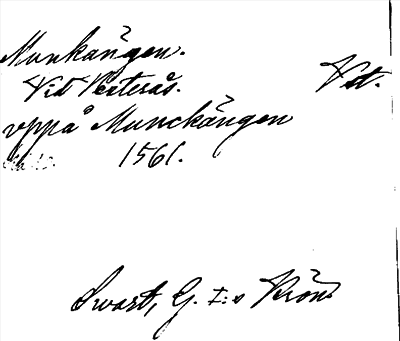 Munkängen.
Vid Vesterås. Vstm.
vppå Munckängen
1561.
Swart, G. I:s Krön.